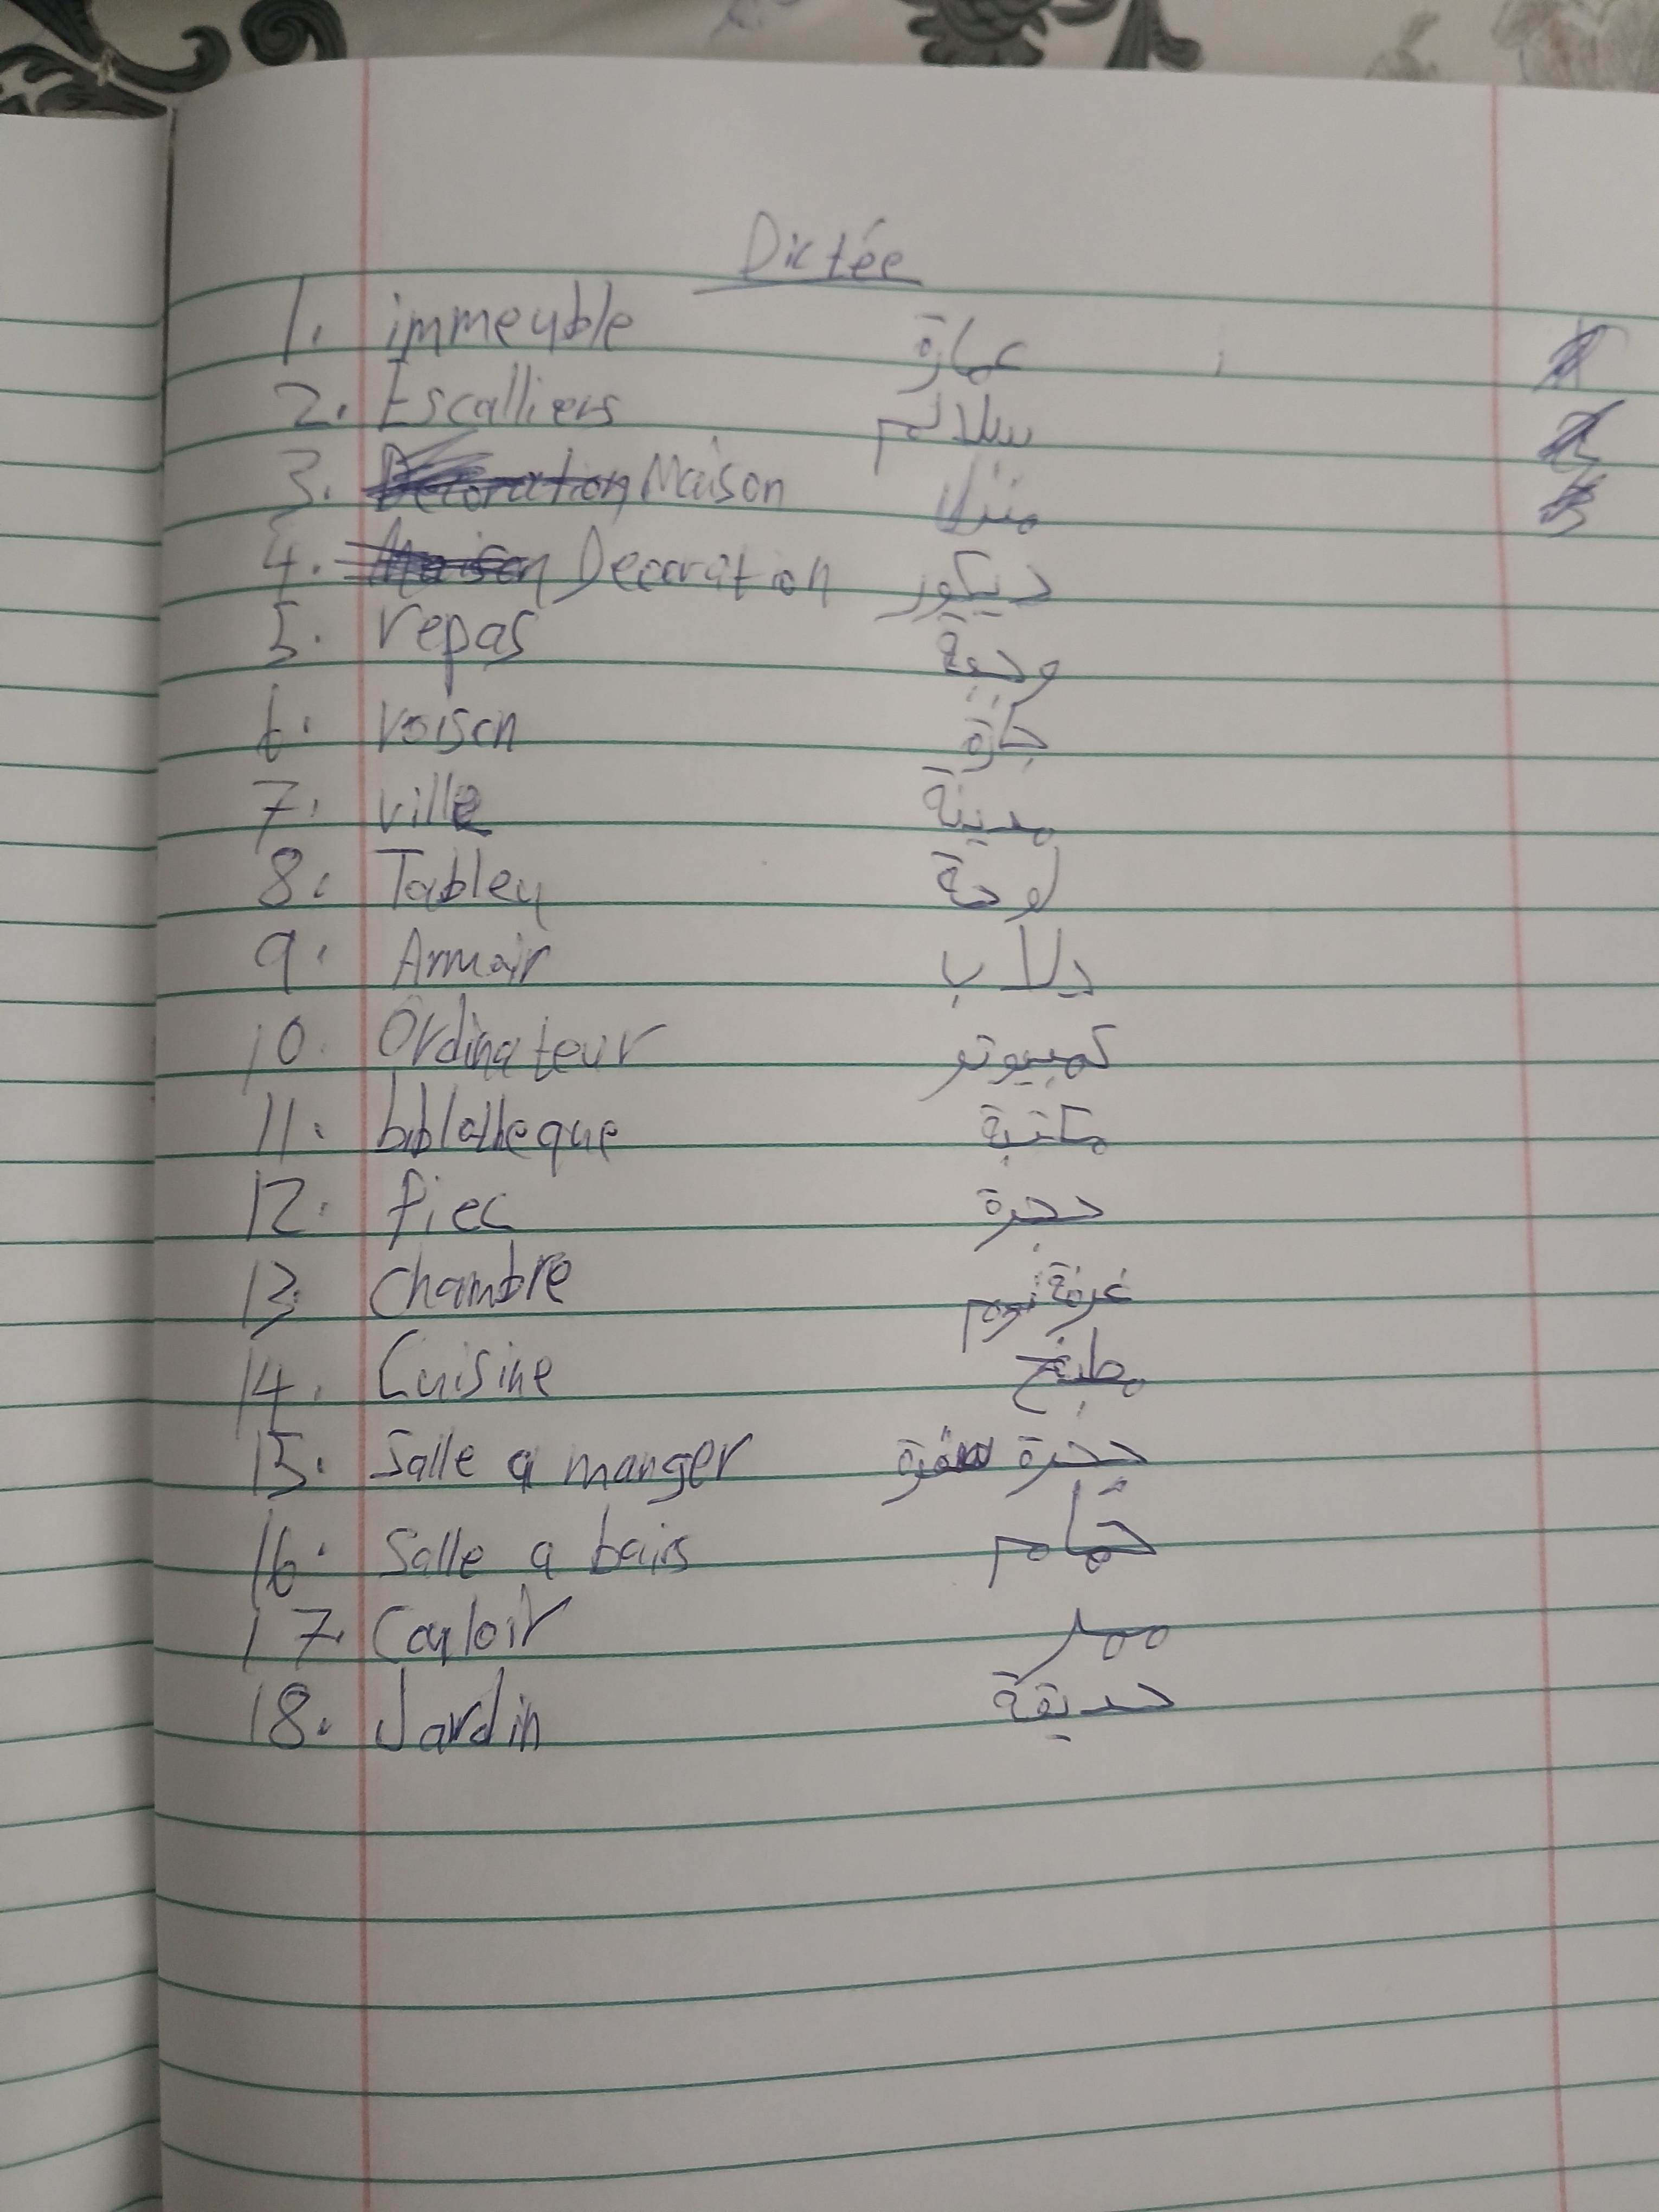 Dictée
1. immeuble عمارة
2. Escalliers سلالم
3. Maison منزل
4. Decoration ديكور
5. repas وجبة
6. voison جارة
7. ville مدينة
8. Tableu لوحة
9. Armair دلاب
10. Ordinateur كمبيوتر
11. biblatheque مكتبة
12. piec حجرة
13. chambre غرفة نوم
14. Cuisine مطبخ
15. Salle a manger حجرة سفرة
16. Salle a bains حمام
17. Couloir ممر
18. Jardin حديقة